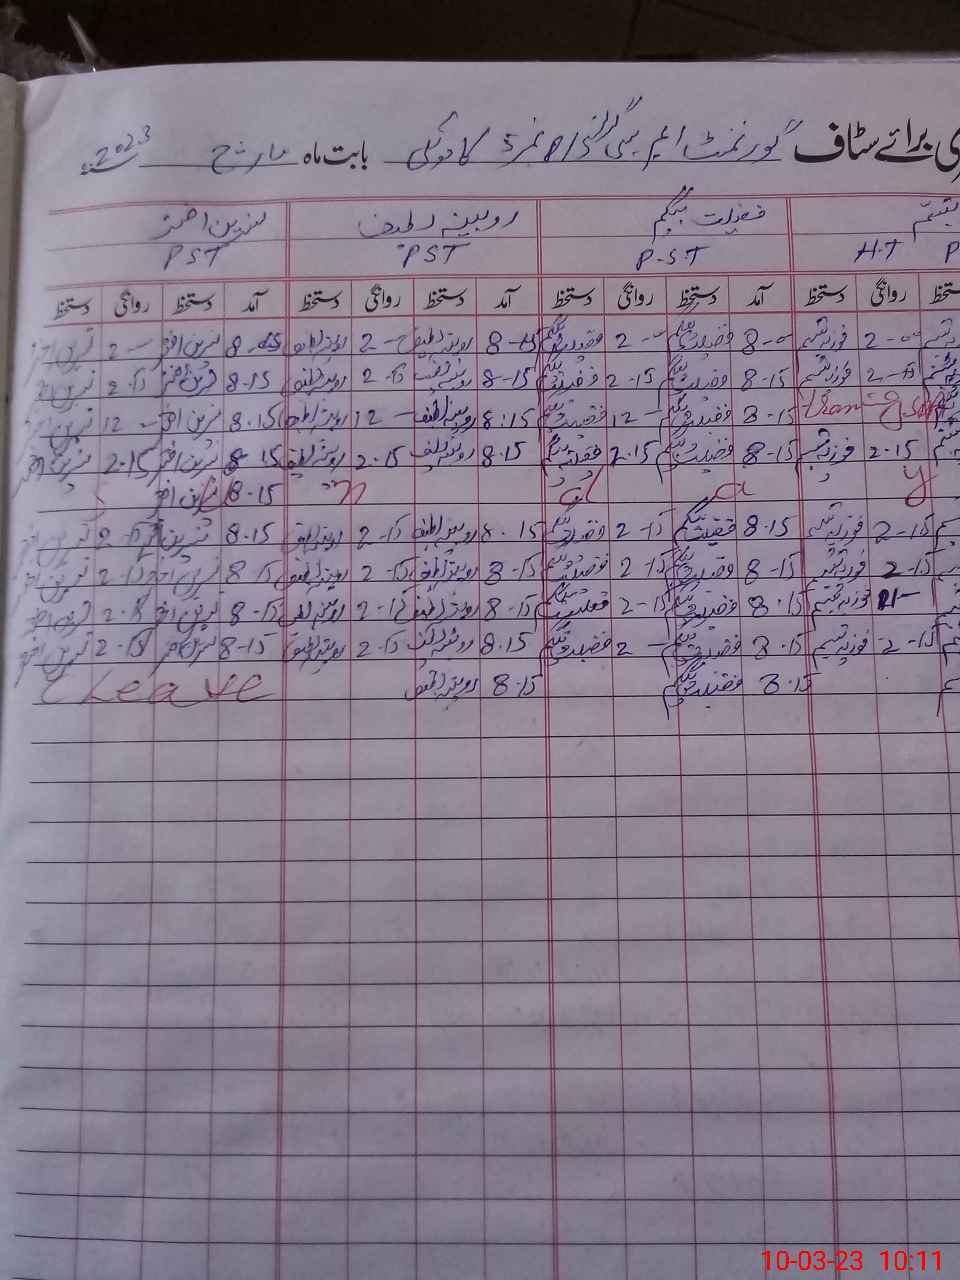 ی برائے سٹاف گورنمنٹ ایم سی گرلز نمبر 5 کاموکی بابت ماہ مارچ 2023
فضیلت بیگم روبینہ لطیف نسرین اختر
H.T P.ST PST PST
دستخط روانگی دستخط آمد دستخط روانگی دستخط آمد دستخط روانگی دستخط آمد دستخط روانگی دستخط
2-00 فوزیہ تبسم 8-00 فضیلت بیگم 2-00 فضیلت بیگم 8-15 روبینہ لطیف 2-00 روبینہ لطیف 8-15 نسرین اختر 2-00 نسرین اختر
2-15 فوزیہ تبسم 8-15 فضیلت بیگم 2-15 فضیلت بیگم 8-15 روبینہ لطیف 2-15 روبینہ لطیف 8.15 نسرین اختر 2-15 نسرین اختر
8-15 فضیلت بیگم 12- فضیلت بیگم 8:15 روبینہ لطیف 12- روبینہ لطیف 8.15 نسرین اختر 12- نسرین اختر
2.15 فوزیہ تبسم 8-15 فضیلت بیگم 2.15 فضیلت بیگم 8.15 روبینہ لطیف 2.15 روبینہ لطیف 8.15 نسرین اختر 2.15 نسرین اختر
S u n d a y 8.15 نسرین اختر
2-15 فوزیہ تبسم 8.15 فضیلت بیگم 2-15 فضیلت بیگم 8.15 روبینہ لطیف 2-15 روبینہ لطیف 8.15 نسرین اختر 2-15 نسرین اختر
2-15 فوزیہ تبسم 8-15 فضیلت بیگم 2-15 فضیلت بیگم 8-15 روبینہ لطیف 2-15 روبینہ لطیف 8-15 نسرین اختر 2-15 نسرین اختر
11- فوزیہ تبسم 8.15 فضیلت بیگم 2-15 فضیلت بیگم 8-15 روبینہ لطیف 2-15 روبینہ لطیف 8-15 نسرین اختر نسرین اختر
2-15 فوزیہ تبسم 8.15 فضیلت بیگم 2- فضیلت بیگم 8.15 روبینہ لطیف 2-15 روبینہ لطیف 8-15 نسرین اختر 2-15 نسرین اختر
8.15 فضیلت بیگم 8.15 روبینہ لطیف Leave
10-03-23 10:11